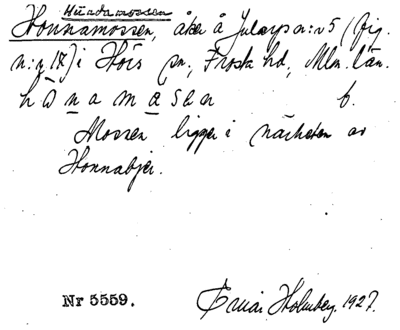 Hunda mossen
Honnamossen, åker å Jularps n:o 5 (fig.
n:o 18) i Hörs sn, Frosta hd, Mlm. län.
hånamåsen f.
Mossen ligger i närheten av
Honnabjer.
Nr 5559. Einar Holmberg. 1927.